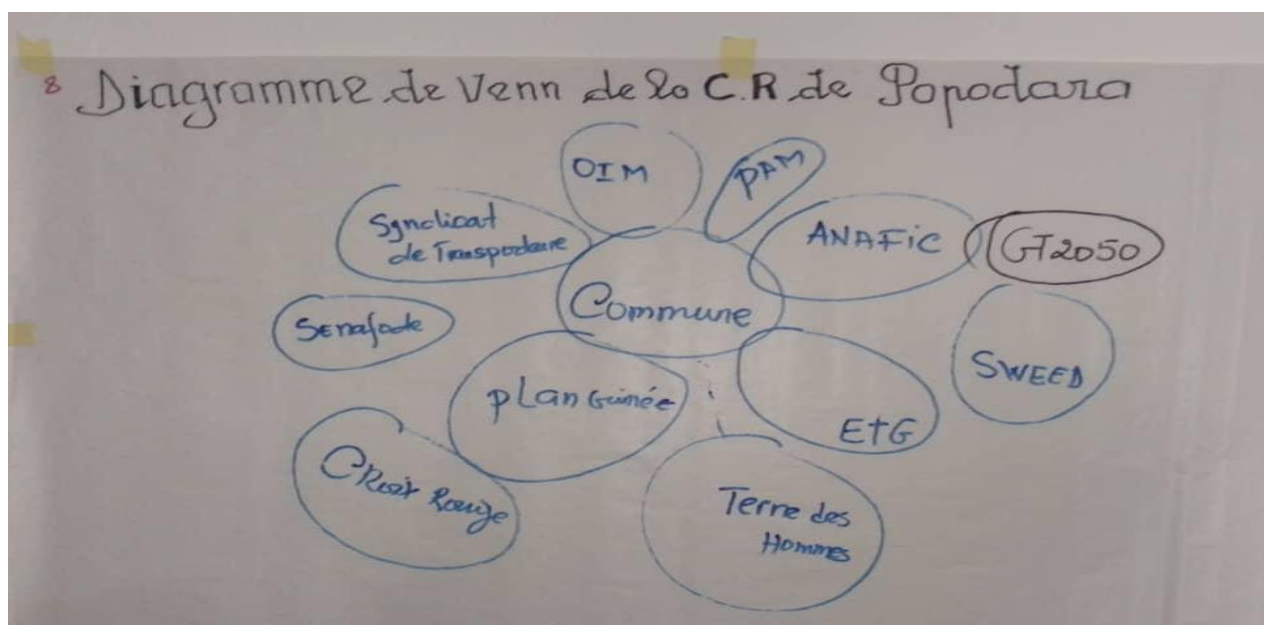 8 Diagramme de Venn de la C.R de Popodara
OIM
PAM
Syndicat
de Transporteure
ANAFiC
GT2050
Commune
Senafode
SWEED
pLan Guinée
E+G
CRoix Rouge
Terre des
Hommes